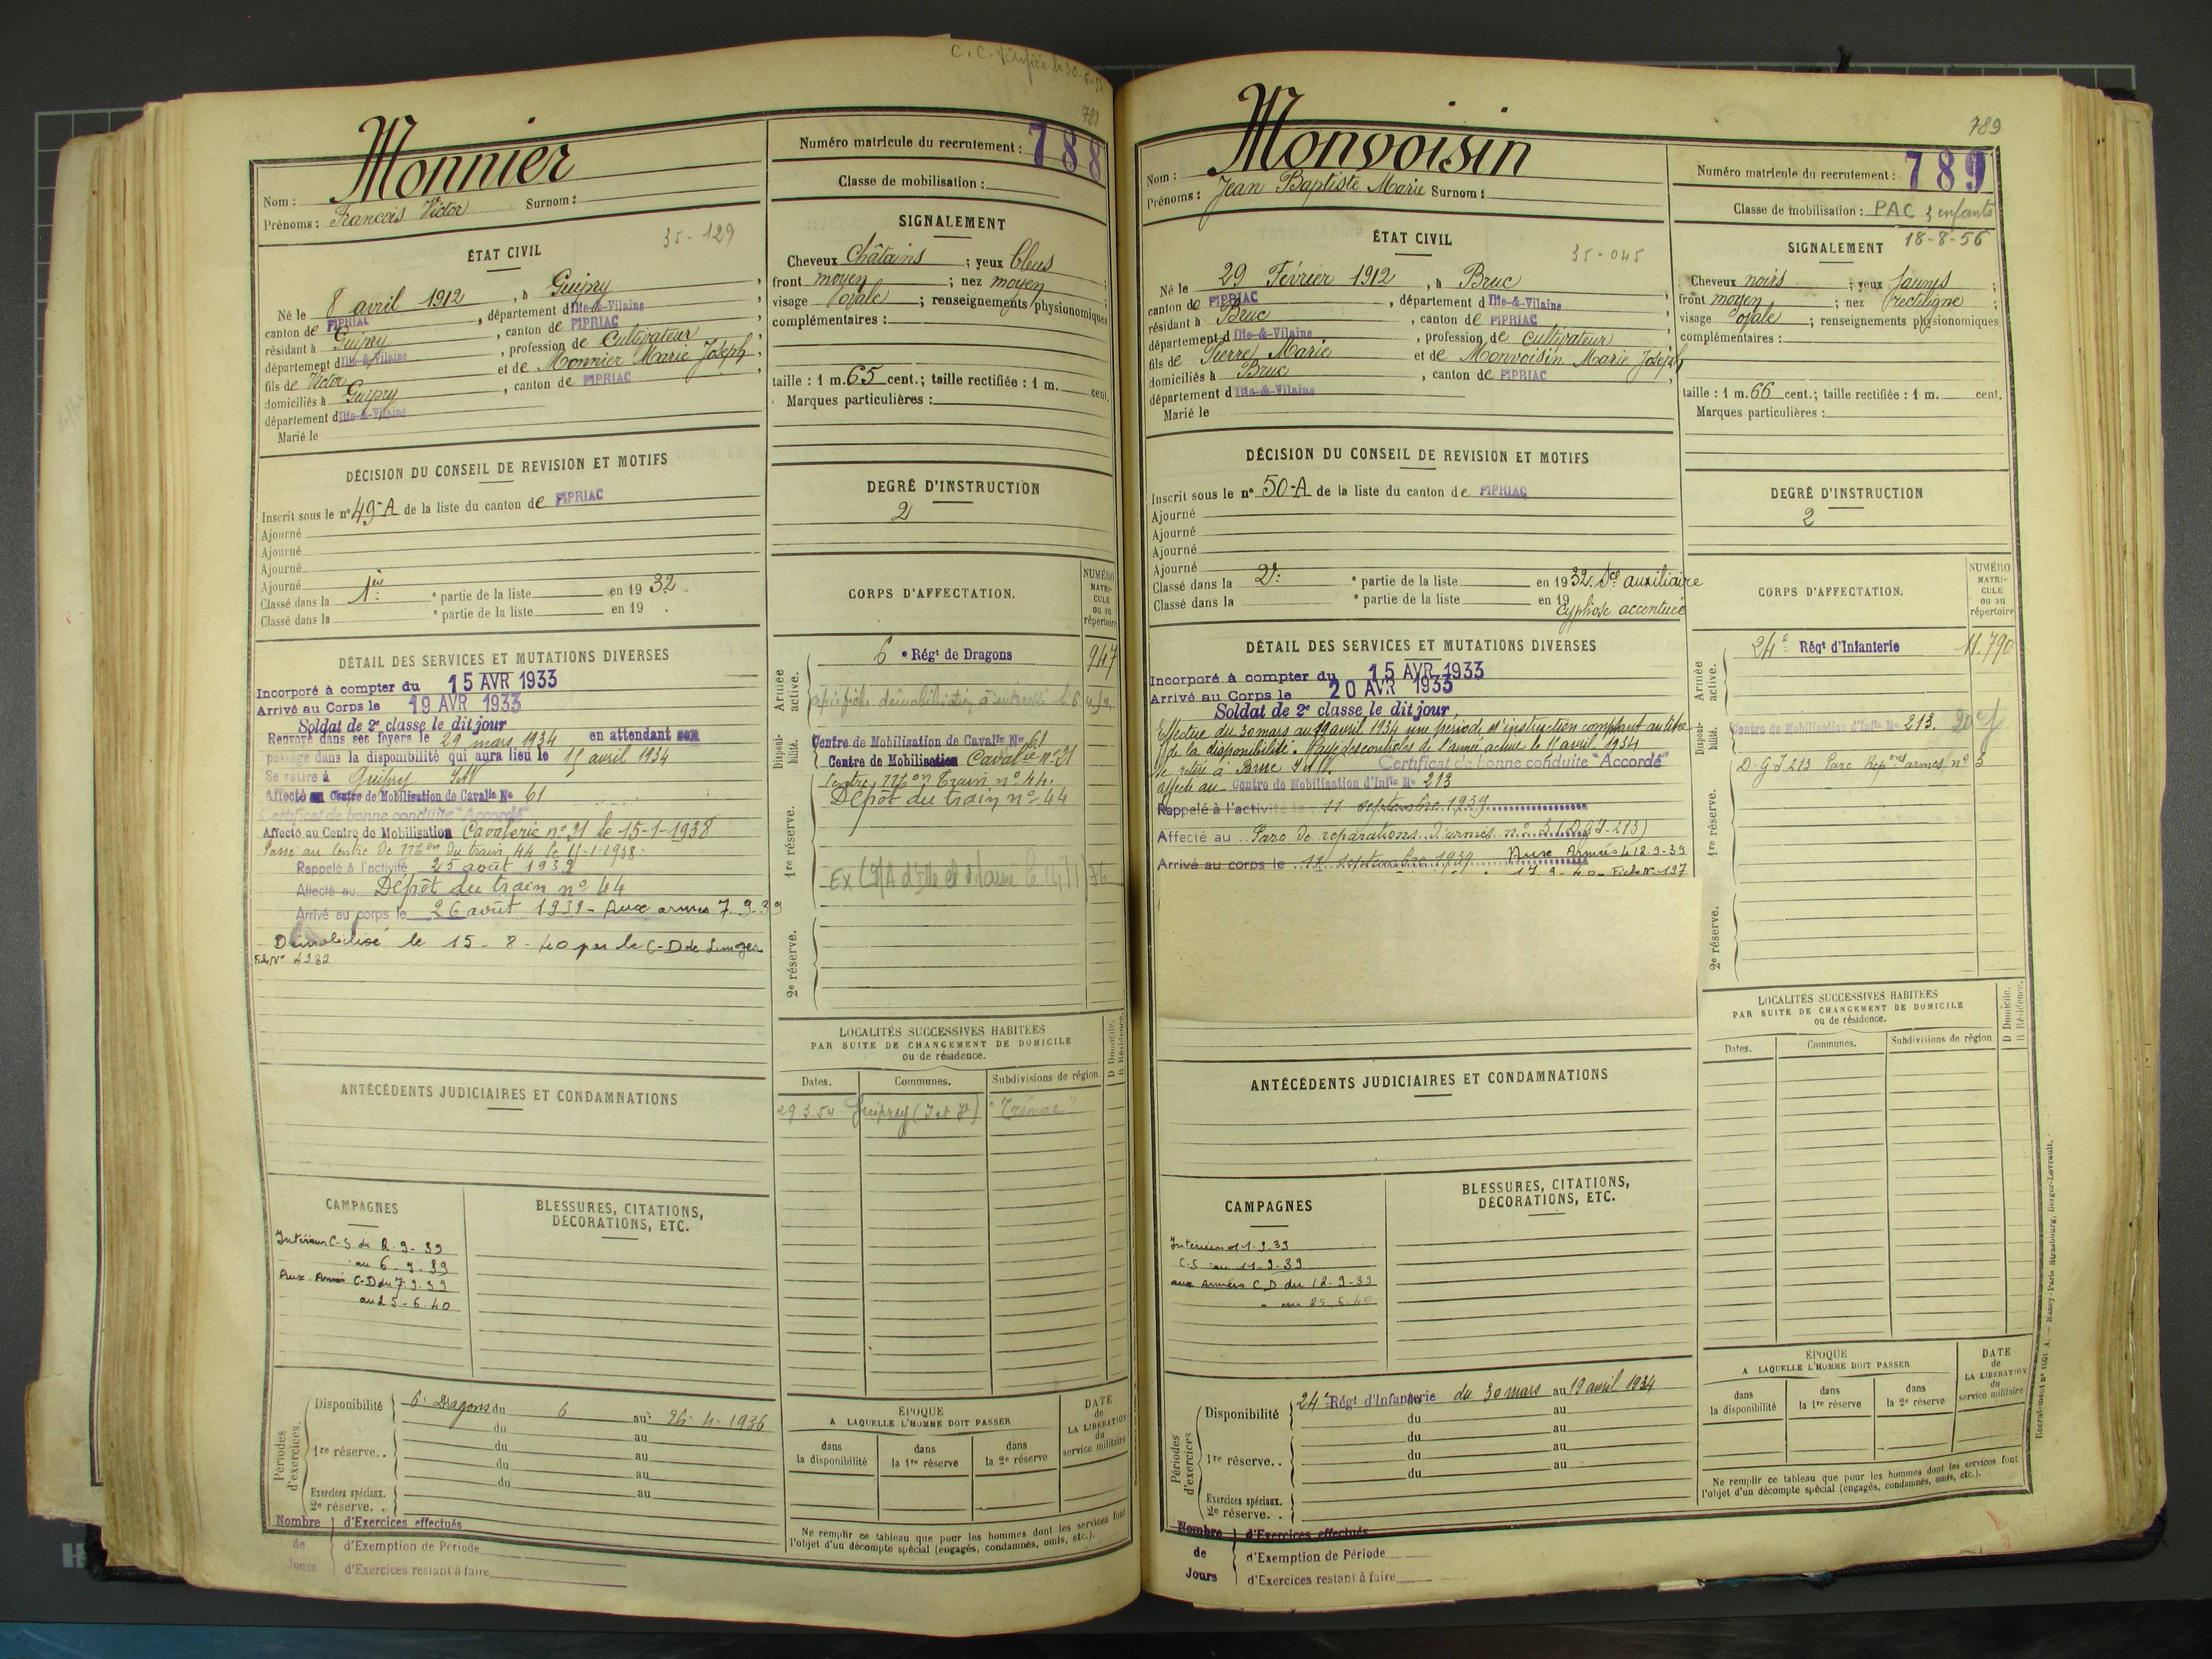 C.C. Vérifiée le 30-6-
788
Monnier
Nom :
Prénoms : François Victor Surnom :
Numéro matricule du recrutement : 788
Classe de mobilisation :
ÉTAT CIVIL
35-129
Né le 8 avril 1912, à Guipry,
canton de PIPRIAC, département d'Ille-&-Vilaine,
résidant à Guipry, canton de PIPRIAC,
département d'Ille-&-Vilaine, profession de cultivateur,
fils de Victor et de Monnier Marie Joseph,
domiciliés à Guipry, canton de PIPRIAC,
département d'Ille-&-Vilaine
Marié le
SIGNALEMENT
Cheveux châtains ; yeux bleus ;
front moyen ; nez moyen ;
visage ovale ; renseignements physionomiques
complémentaires :
taille : 1 m. 65 cent. ; taille rectifiée : 1 m. cent.
Marques particulières :
DÉCISION DU CONSEIL DE REVISION ET MOTIFS
Inscrit sous le n° 49-A de la liste du canton de PIPRIAC
Ajourné
Ajourné
Ajourné
Ajourné
Classé dans la 1re ° partie de la liste en 19 32.
Classé dans la ° partie de la liste en 19 .
DEGRÉ D'INSTRUCTION
2
DÉTAIL DES SERVICES ET MUTATIONS DIVERSES
Incorporé à compter du 15 AVR 1933
Arrivé au Corps le 19 AVR 1933
Soldat de 2e classe le dit jour
Renvoyé dans ses foyers le 29 mars 1934 en attendant son
passage dans la disponibilité qui aura lieu le 15 avril 1934
Se retire à Guipry I&V
Affecté au Centre de Mobilisation de Cavalle No 61
Certificat de bonne conduite "Accordé"
Affecté au Centre de Mobilisation Cavalerie n° 31 le 15-1-1938
Passé au Centre de Mon du train 44 le 15-1-1938.
Rappelé à l'activité 25 août 1939
Affecté au Dépôt du train n° 44
Arrivé au corps le 26 août 1939 - Aux armées 7.9.39
Démobilisé le 15-8-40 par le C-D de Limoges
Fiche N° 4282
CORPS D'AFFECTATION.
NUMÉRO MATRICULE ou au répertoire
Armée active.
6 e Régt de Dragons 947
Disponibilité.
Centre de Mobilisation de Cavalle No 61
Centre de Mobilisation Cavalie n° 31
1re réserve.
Centre Mon Train n° 44.
Dépôt du train n° 44
2e réserve.
LOCALITÉS SUCCESSIVES HABITÉES
PAR SUITE DE CHANGEMENT DE DOMICILE
ou de résidence.
D Domicile.
R Résidence.
Dates. Communes. Subdivisions de région.
29.3.54 Guipry (I et V) "Trémac"
ANTÉCÉDENTS JUDICIAIRES ET CONDAMNATIONS
CAMPAGNES
Intérieur C-S du 2-9-39
au 6-9-39
Aux Armées C-D du 7-9-39
au 25-6-40
BLESSURES, CITATIONS,
DÉCORATIONS, ETC.
Périodes d'exercices.
Disponibilité 6e Dragons du 6 au 26.4.1936
du au
1re réserve. . du au
du au
du au
Exercices spéciaux.
2e réserve. . au
Nombre de Jours
d'Exercices effectués
d'Exemption de Période
d'Exercices restant à faire
ÉPOQUE
A LAQUELLE L'HOMME DOIT PASSER
dans la disponibilité
dans la 1re réserve
dans la 2e réserve
DATE de LA LIBÉRATION du service militaire
Ne remplir ce tableau que pour les hommes dont les services font
l'objet d'un décompte spécial (engagés, condamnés, omis, etc.).
789
Monvoisin
Nom :
Prénoms : Jean Baptiste Marie Surnom :
Numéro matricule du recrutement : 789
Classe de mobilisation : PAC 3 enfants
18-8-56
ÉTAT CIVIL
35-045
Né le 29 Février 1912, à Bruc
canton de PIPRIAC, département d'Ille-&-Vilaine,
résidant à Bruc, canton de PIPRIAC,
département d'Ille-&-Vilaine, profession de cultivateur,
fils de Pierre Marie et de Monvoisin Marie Joseph,
domiciliés à Bruc, canton de PIPRIAC
département d'Ille-&-Vilaine
Marié le
SIGNALEMENT
Cheveux noirs ; yeux jaunes ;
front moyen ; nez rectiligne ;
visage ovale ; renseignements physionomiques
complémentaires :
taille : 1 m. 66 cent. ; taille rectifiée : 1 m. cent.
Marques particulières :
DÉCISION DU CONSEIL DE REVISION ET MOTIFS
Inscrit sous le n° 50-A de la liste du canton de PIPRIAC
Ajourné
Ajourné
Ajourné
Ajourné
Classé dans la 2e ° partie de la liste en 19 32. Sce auxiliaire
Classé dans la ° partie de la liste en 19 Cyphose accentuée
DEGRÉ D'INSTRUCTION
2
DÉTAIL DES SERVICES ET MUTATIONS DIVERSES
Incorporé à compter du 15 AVR 1933
Arrivé au Corps le 20 AVR 1933
Soldat de 2e classe le dit jour
Effectue du 30 mars au 19 avril 1934 une période d'instruction comptant au titre
de la disponibilité. Rayé des contrôles de l'armée active le 11 avril 1934
Se retire à Bruc I&V. Certificat de bonne conduite "Accordé"
affecté au Centre de Mobilisation d'Infie No 213
Rappelé à l'activité le 11 septembre 1939
Affecté au Parc de réparations d'armes n° 3 (DGI-213)
Arrivé au corps le 11 septembre 1939 Aux Armées le 12-9-39
Fiche N° 197
CORPS D'AFFECTATION.
NUMÉRO MATRICULE ou au répertoire
Armée active.
24e Régt d'Infanterie 11.790
Disponibilité.
Centre de Mobilisation d'Infie No 213.
D.G.I 213 Parc Repons armes n° 3
1re réserve.
2e réserve.
LOCALITÉS SUCCESSIVES HABITÉES
PAR SUITE DE CHANGEMENT DE DOMICILE
ou de résidence.
D Domicile.
R Résidence.
Dates. Communes. Subdivisions de région.
ANTÉCÉDENTS JUDICIAIRES ET CONDAMNATIONS
CAMPAGNES
Intérieur 11-9-39
C-S au 11-9-39
aux Armées C D du 12-9-39
au 25-6-40
BLESSURES, CITATIONS,
DÉCORATIONS, ETC.
Périodes d'exercices
Disponibilité 24e Régt d'Infanterie du 30 mars au 19 avril 1934
du au
1re réserve. . du au
du au
du au
Exercices spéciaux.
2e réserve. .
Nombre de Jours
d'Exercices effectués
d'Exemption de Période
d'Exercices restant à faire
ÉPOQUE
A LAQUELLE L'HOMME DOIT PASSER
dans la disponibilité
dans la 1re réserve
dans la 2e réserve
DATE de LA LIBÉRATION du service militaire
Ne remplir ce tableau que pour les hommes dont les services font
l'objet d'un décompte spécial (engagés, condamnés, omis, etc.).
Nancy-Paris-Strasbourg, Berger-Levrault.